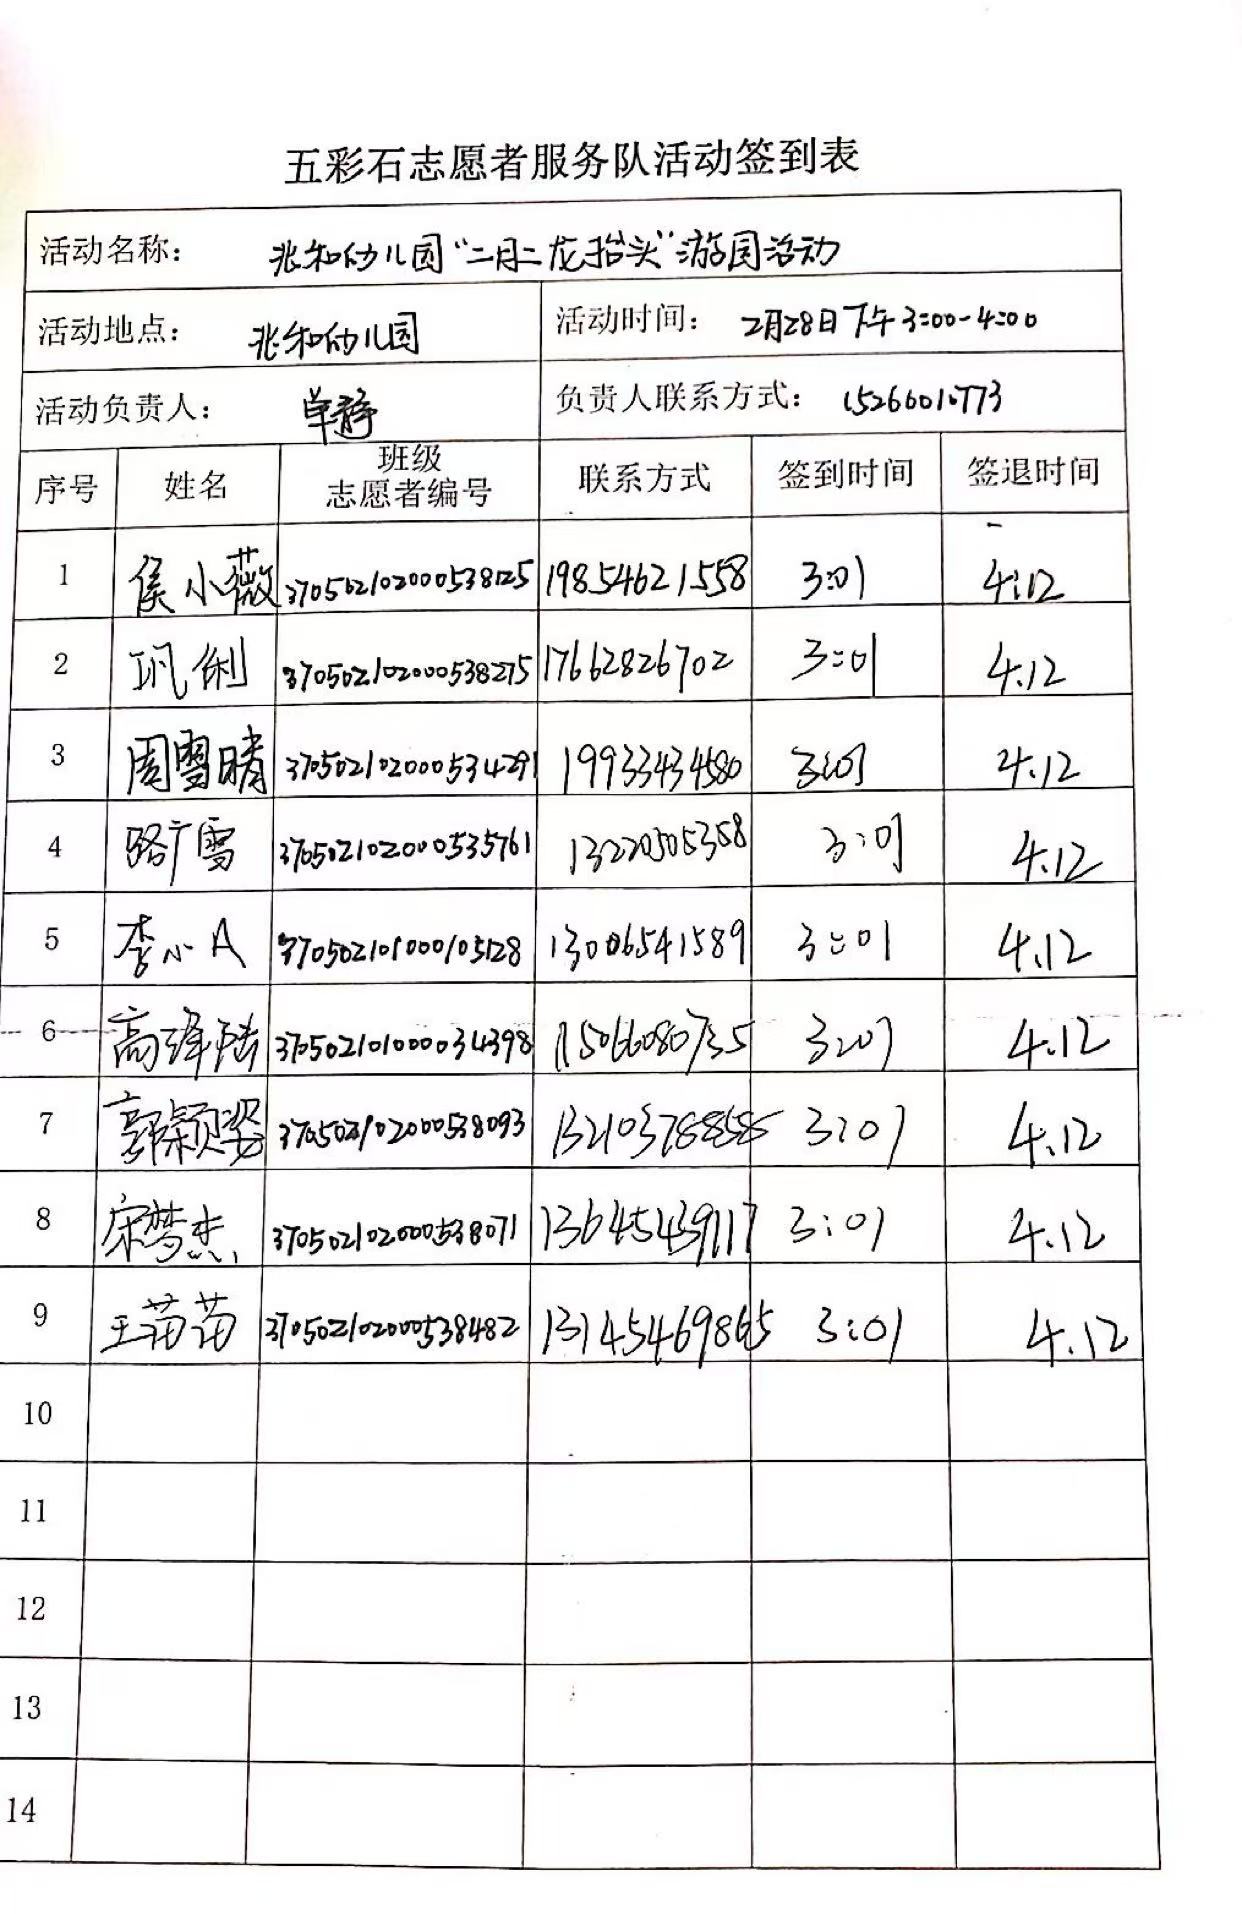 五彩石志愿者服务队活动签到表
活动名称： 兆和幼儿园“二月二龙抬头”游园活动
活动地点： 兆和幼儿园 活动时间： 2月28日下午3:00-4:00
活动负责人： 单静 负责人联系方式： 15266010773
序号 姓名 班级志愿者编号 联系方式 签到时间 签退时间
1 侯小薇 370502102000538125 19854621558 3:01 4:12
2 巩俐 370502102000538275 17662826702 3:01 4.12
3 周雪晴 370502102000534291 19933434580 3:01 4.12
4 路广雪 370502102000535761 13220505358 3:01 4.12
5 李小 370502101000105128 13006541589 3:01 4.12
6 高 370502101000034398 15066080735 3:01 4.12
7 郭颖 370502102000538093 3:01 4.12
8 宋梦杰 370502102000538071 13645459117 3:01 4.12
9 王苗苗 370502102000538482 13145469865 3:01 4.12
10
11
12
13
14